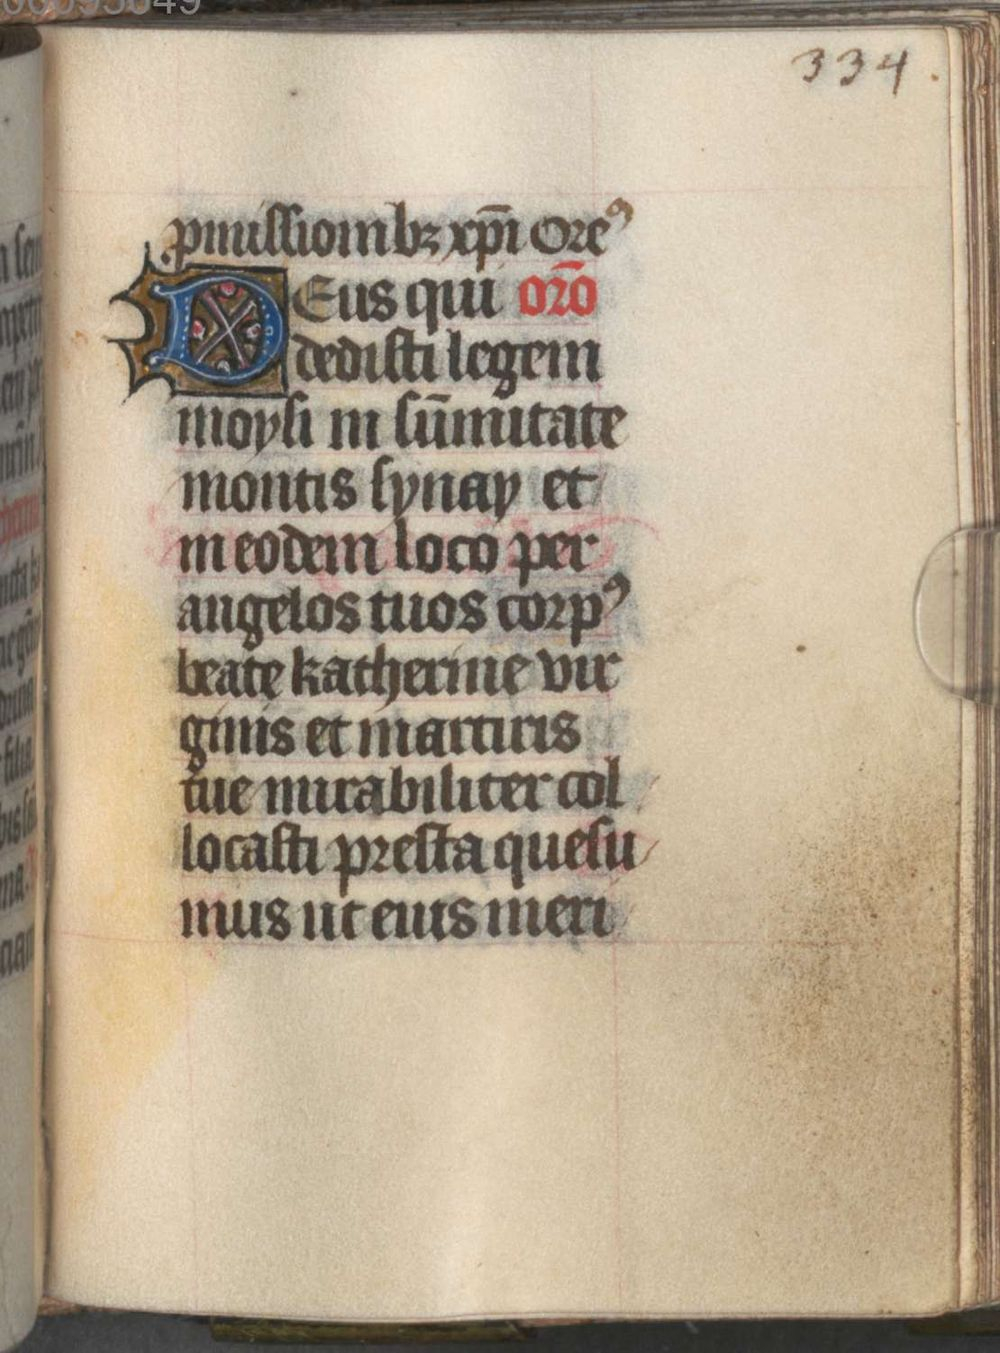 334.
pmissionibꝫ xp̄i Oreꝰ
DEus qui orō
dedisti legem
moysi in sūmitate
montis synay et
in eodem loco per
angelos tuos corpꝰ
beate katherine vir
ginis et martiris
tue mirabiliter col
locasti presta quesu
mus ut eius meri